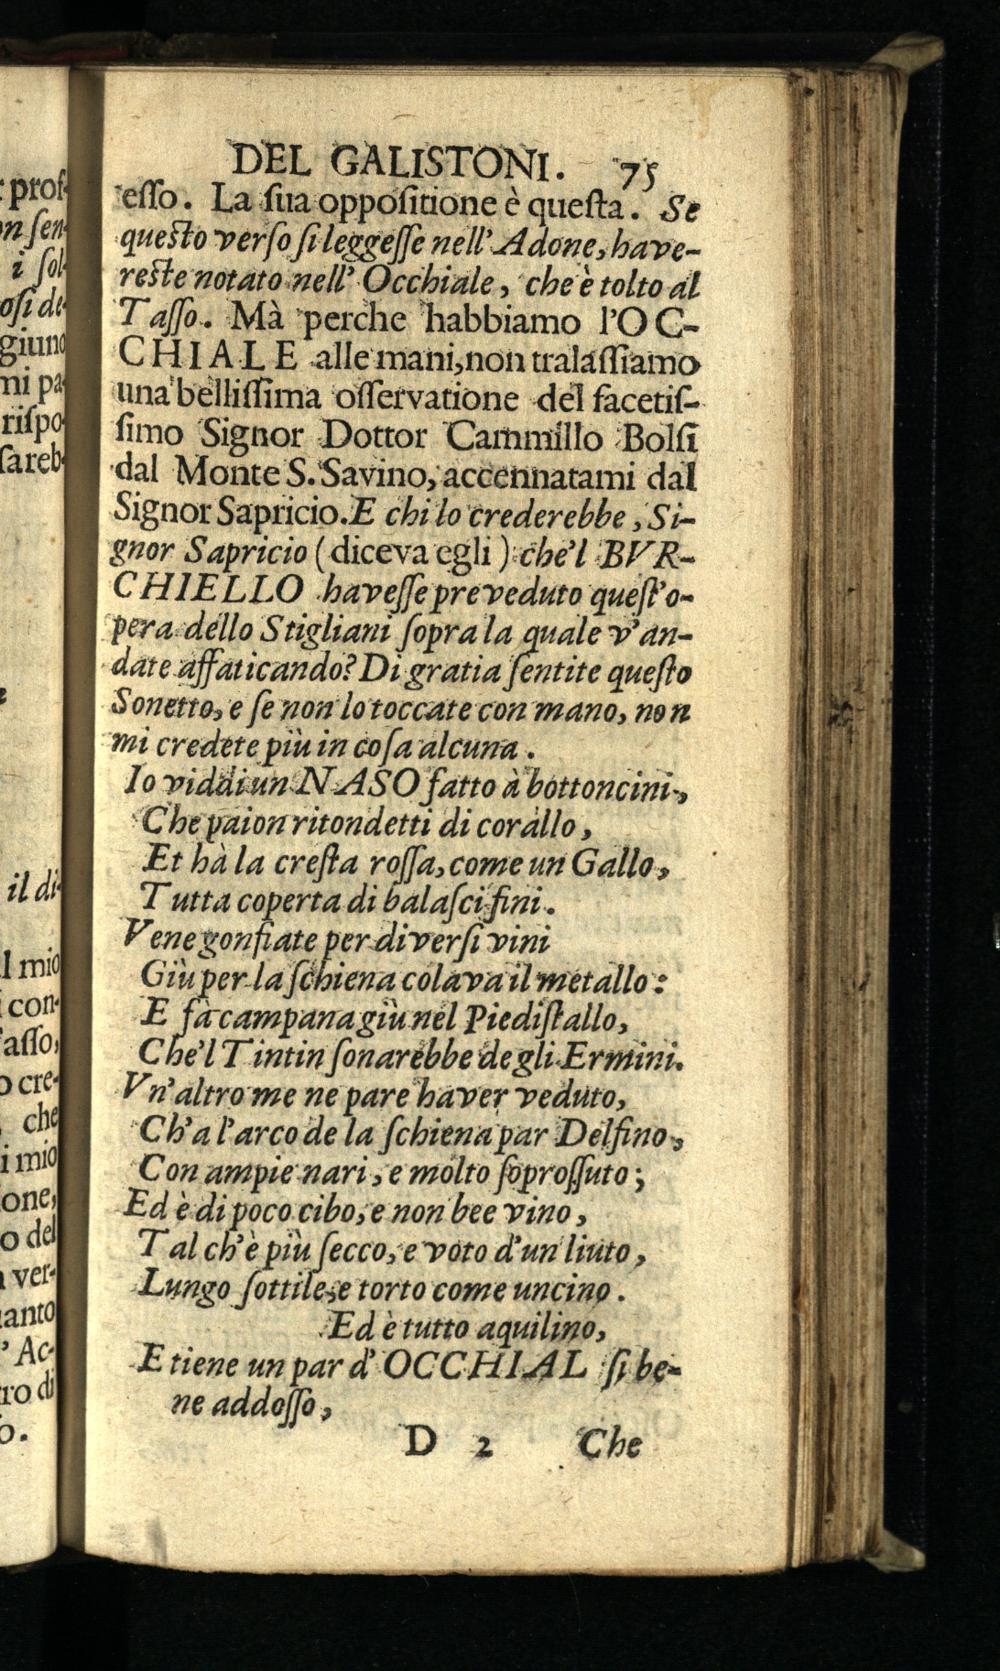 DEL GALISTONI. 75
esso. La sua oppositione è questa. Se
questo verso si leggesse nell' Adone, have-
reste notato nell' Occhiale, che è tolto al
Tasso. Mà perche habbiamo l'OC-
CHIALE alle mani, non tralassiamo
una bellissima osservatione del facetis-
simo Signor Dottor Cammillo Bolsi
dal Monte S. Savino, accennatami dal
Signor Sapricio. E chi lo crederebbe, Si-
gnor Sapricio (diceva egli) che'l BVR-
CHIELLO havesse preveduto quest'o-
pera dello Stigliani sopra la quale v'an-
date affaticando? Di gratia sentite questo
Sonetto, e se non lo toccate con mano, non
mi credete più in cosa alcuna.
Io viddi un NASO fatto à bottoncini,
Che paion ritondetti di corallo,
Et hà la cresta rossa, come un Gallo,
Tutta coperta di balasci fini.
Vene gonfiate per diversi vini
Giù per la schiena colava il metallo:
E fà campana giù nel Piedistallo,
Che'l Tintin sonarebbe degli Ermini.
Vn'altro me ne pare haver veduto,
Ch'a l'arco de la schiena par Delfino,
Con ampie nari, e molto soprossuto;
Ed è di poco cibo, e non bee vino,
Tal ch'è più secco, e voto d'un liuto,
Lungo sottile, e torto come uncino.
Ed è tutto aquilino,
E tiene un par d' OCCHIAL si be-
ne addosso,
D 2 Che